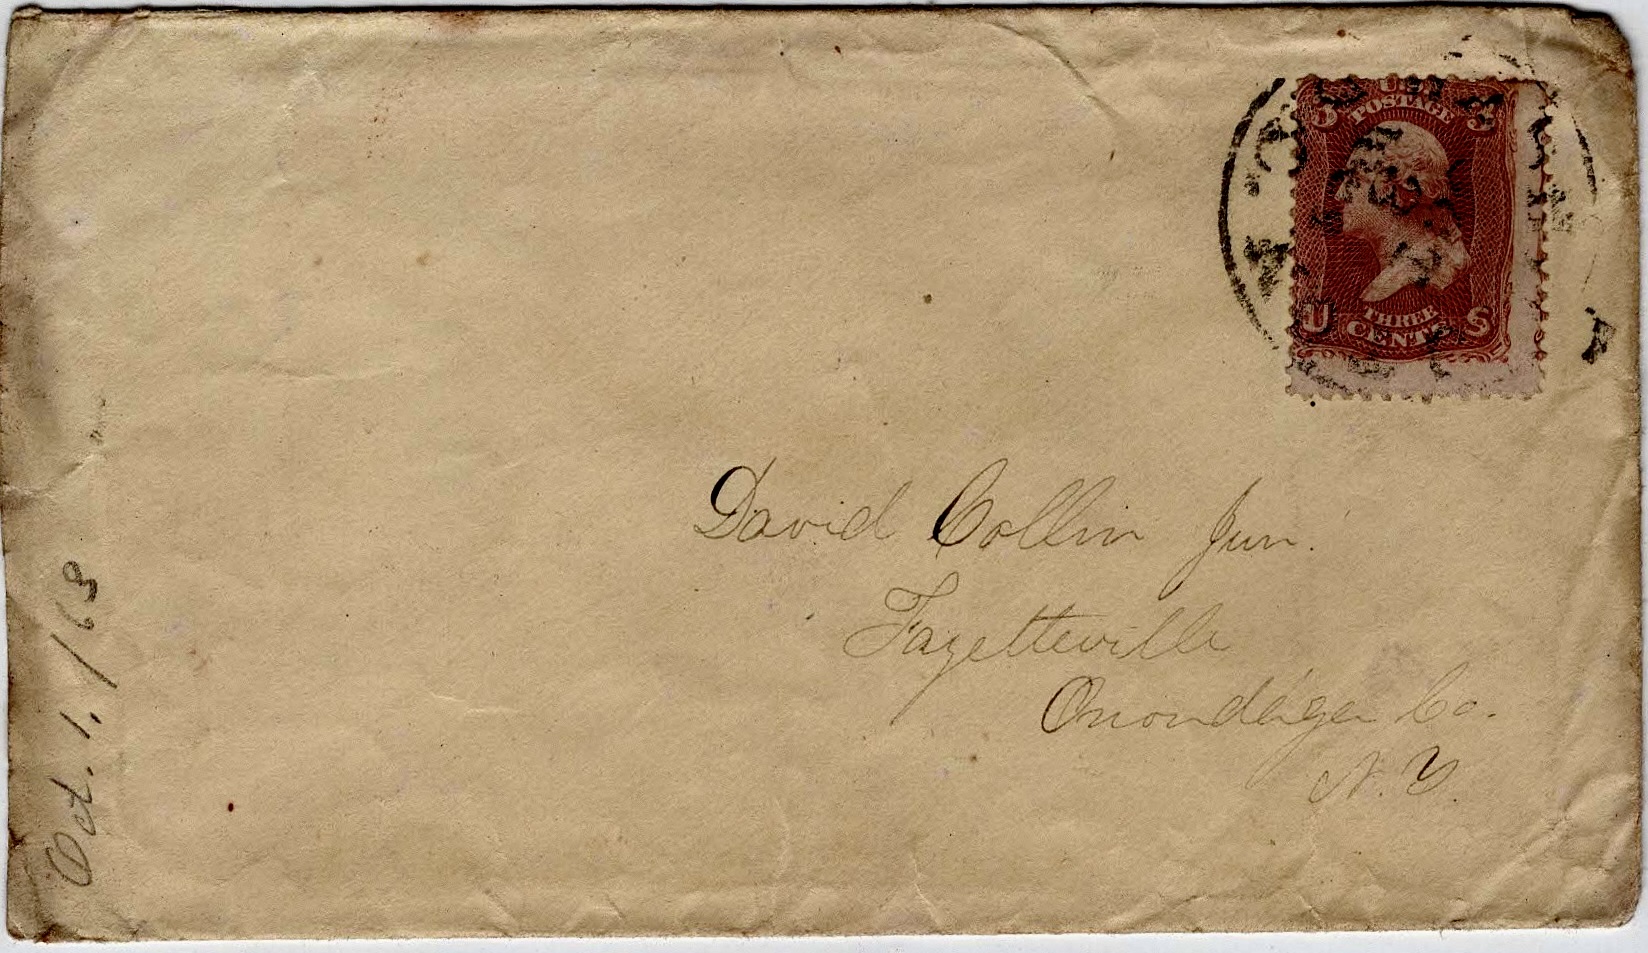 U POSTAGE
3 3
U THREE S
CENTS
David Collin Jun.
Fayetteville
Onondaga Co.
N. Y.
Oct. 1. /63